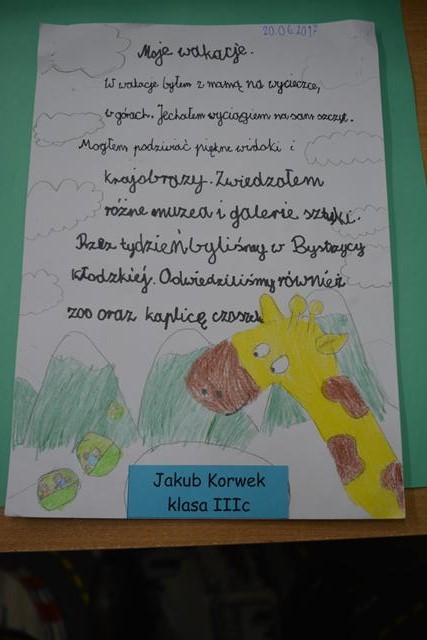 20.06.2017
Moje wakacje.
W wakacje byłem z mamą na wycieczce,
w górach. Jechałem wyciągiem na sam szczyt.
Mogłem podziwiać piękne widoki i
krajobrazy. Zwiedzałem
różne muzea i galerie sztyki.
Przez tydzień byliśmy w Bystrzycy
Kłodzkiej. Odwiedziliśmy również
zoo oraz kaplicę czaszek
Jakub Korwek
klasa IIIc